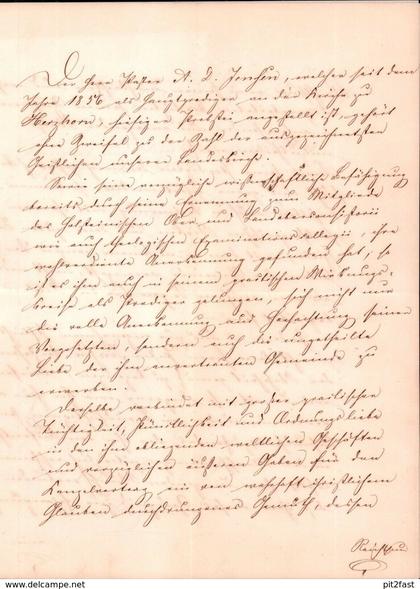 Der Herr Pastor A. D. Jensen, welcher seit dem
Jahre 1856 als Hauptprediger an der Kirche zu
Herzhorn, hiesiger Probstei angestellt ist, gehört
ohne Zweifel zu der Zahl der ausgezeichnetsten
Geistlichen unserer Landeskirche.
Wenn seine vorzügliche wissenschaftliche Befähigung
bereits durch seine Ernennung zum Mitgliede
des Holsteinischen Ober- und Landeconsistorii
wie auch theologischen Examinationscollegii, ihre
wohlverdiente Anerkennung gefunden hat, so
ist es ihm auch in seinem practischen Wirkungs-
kreise als Prediger gelungen, sich nicht nur
die volle Anerkennung und Hochachtung seiner
Vorgesetzten, sondern auch die ungetheilte
Liebe der ihm anvertrauten Gemeinde zu
erwerben.
Derselbe verbindet mit großer practischer
Tüchtigkeit, Pünktlichkeit und Ordnungsliebe
in den ihm obliegenden weltlichen Geschäften
und vorzüglichen äußeren Gaben für den
Kanzelvortrag ein von wahrhaft christlichem
Glauben durchdrungenes Gemüth, dessen
delcampe.net
pit2fast